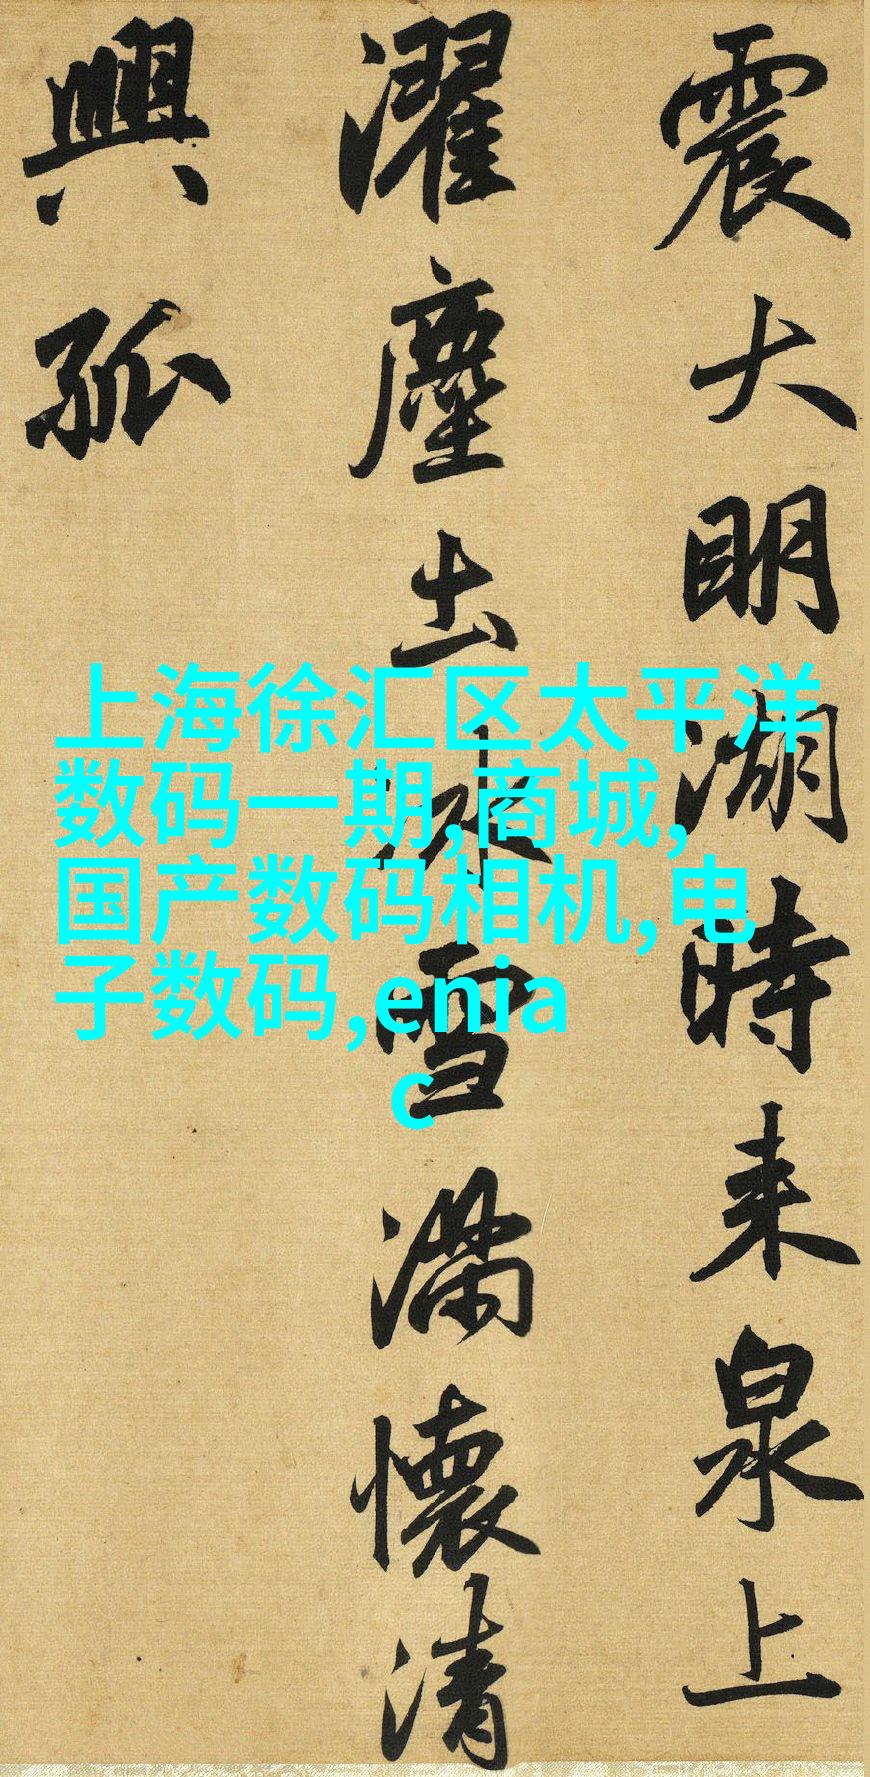 震大明湖時来泉上
濯塵土冰雪滿懷清
興孤
上海徐汇区太平洋
数码一期,商城,
国产数码相机,电
子数码,enia
c